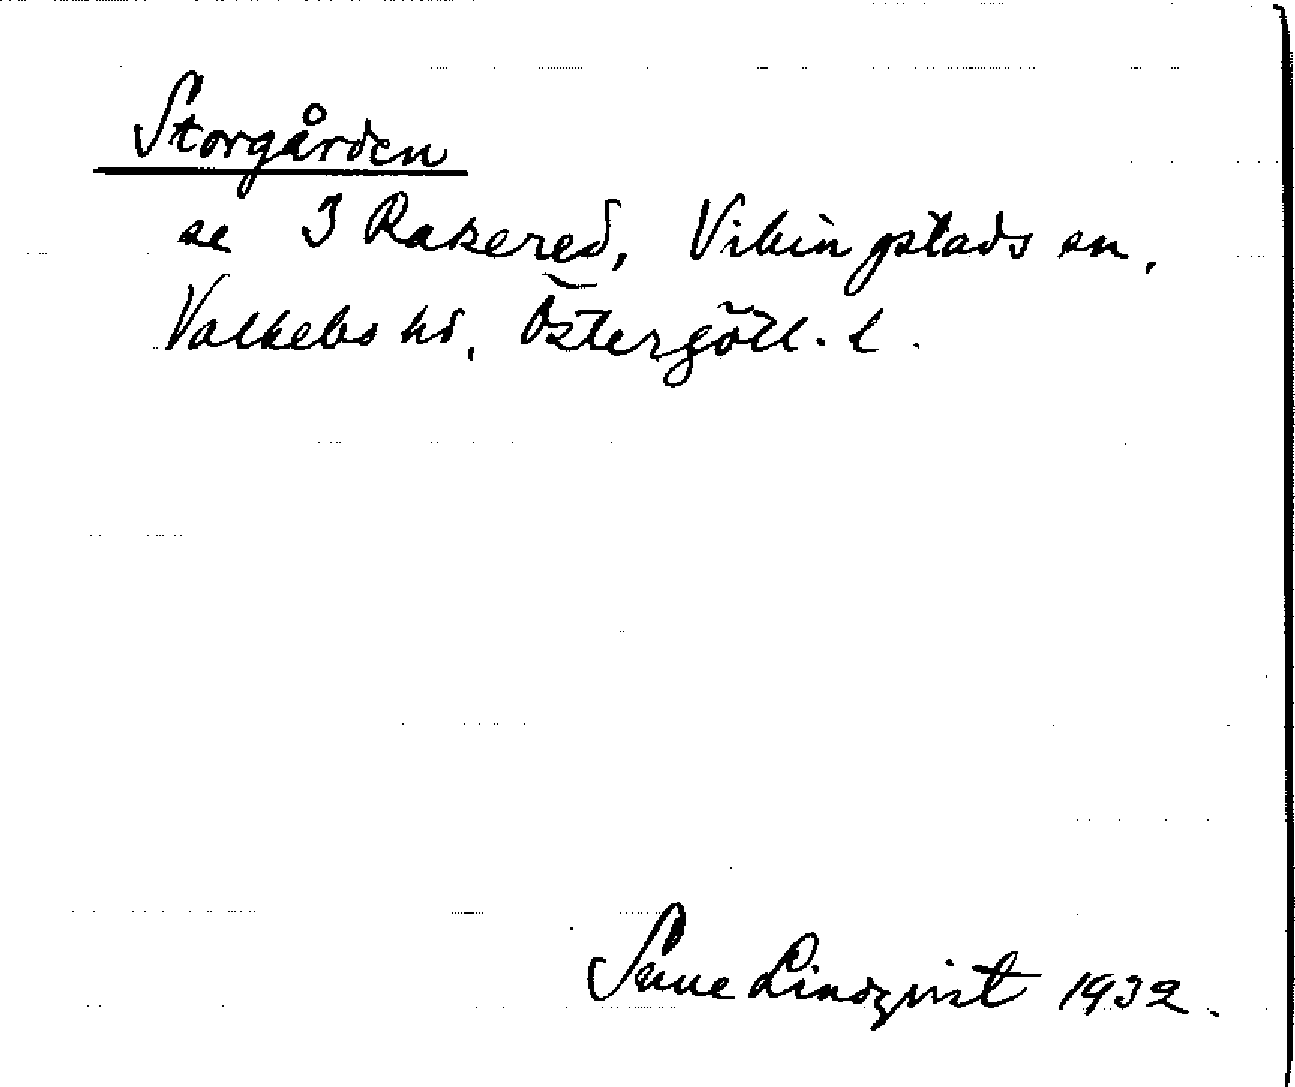 Storgården
se 3 Rakered, Vikingstads sn,
Valkebo hd, Östergötl. l.
Sune Lindqvist 1932.